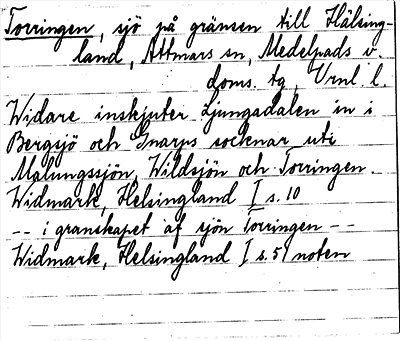 Torringen, sjö på gränsen till Hälsing-
land, Attmars sn, Medelpads v.
doms. tg, Vrnl. l.
Widare inskjuter Ljungadalen in i
Bergsjö och Gnarps socknar uti
Malungssjön, Wildsjön och Torringen.
Widmark, Helsingland I s. 10
-- i granskapet af sjön Torringen --
Widmark, Helsingland I s. 51 noten